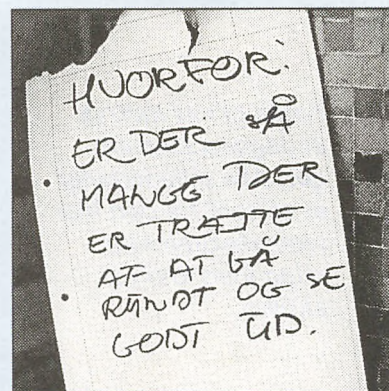 HVORFOR:
ER DER SÅ
MANGE DER
ER TRÆTTE
AF AT GÅ
RUNDT OG SE
GODT UD.